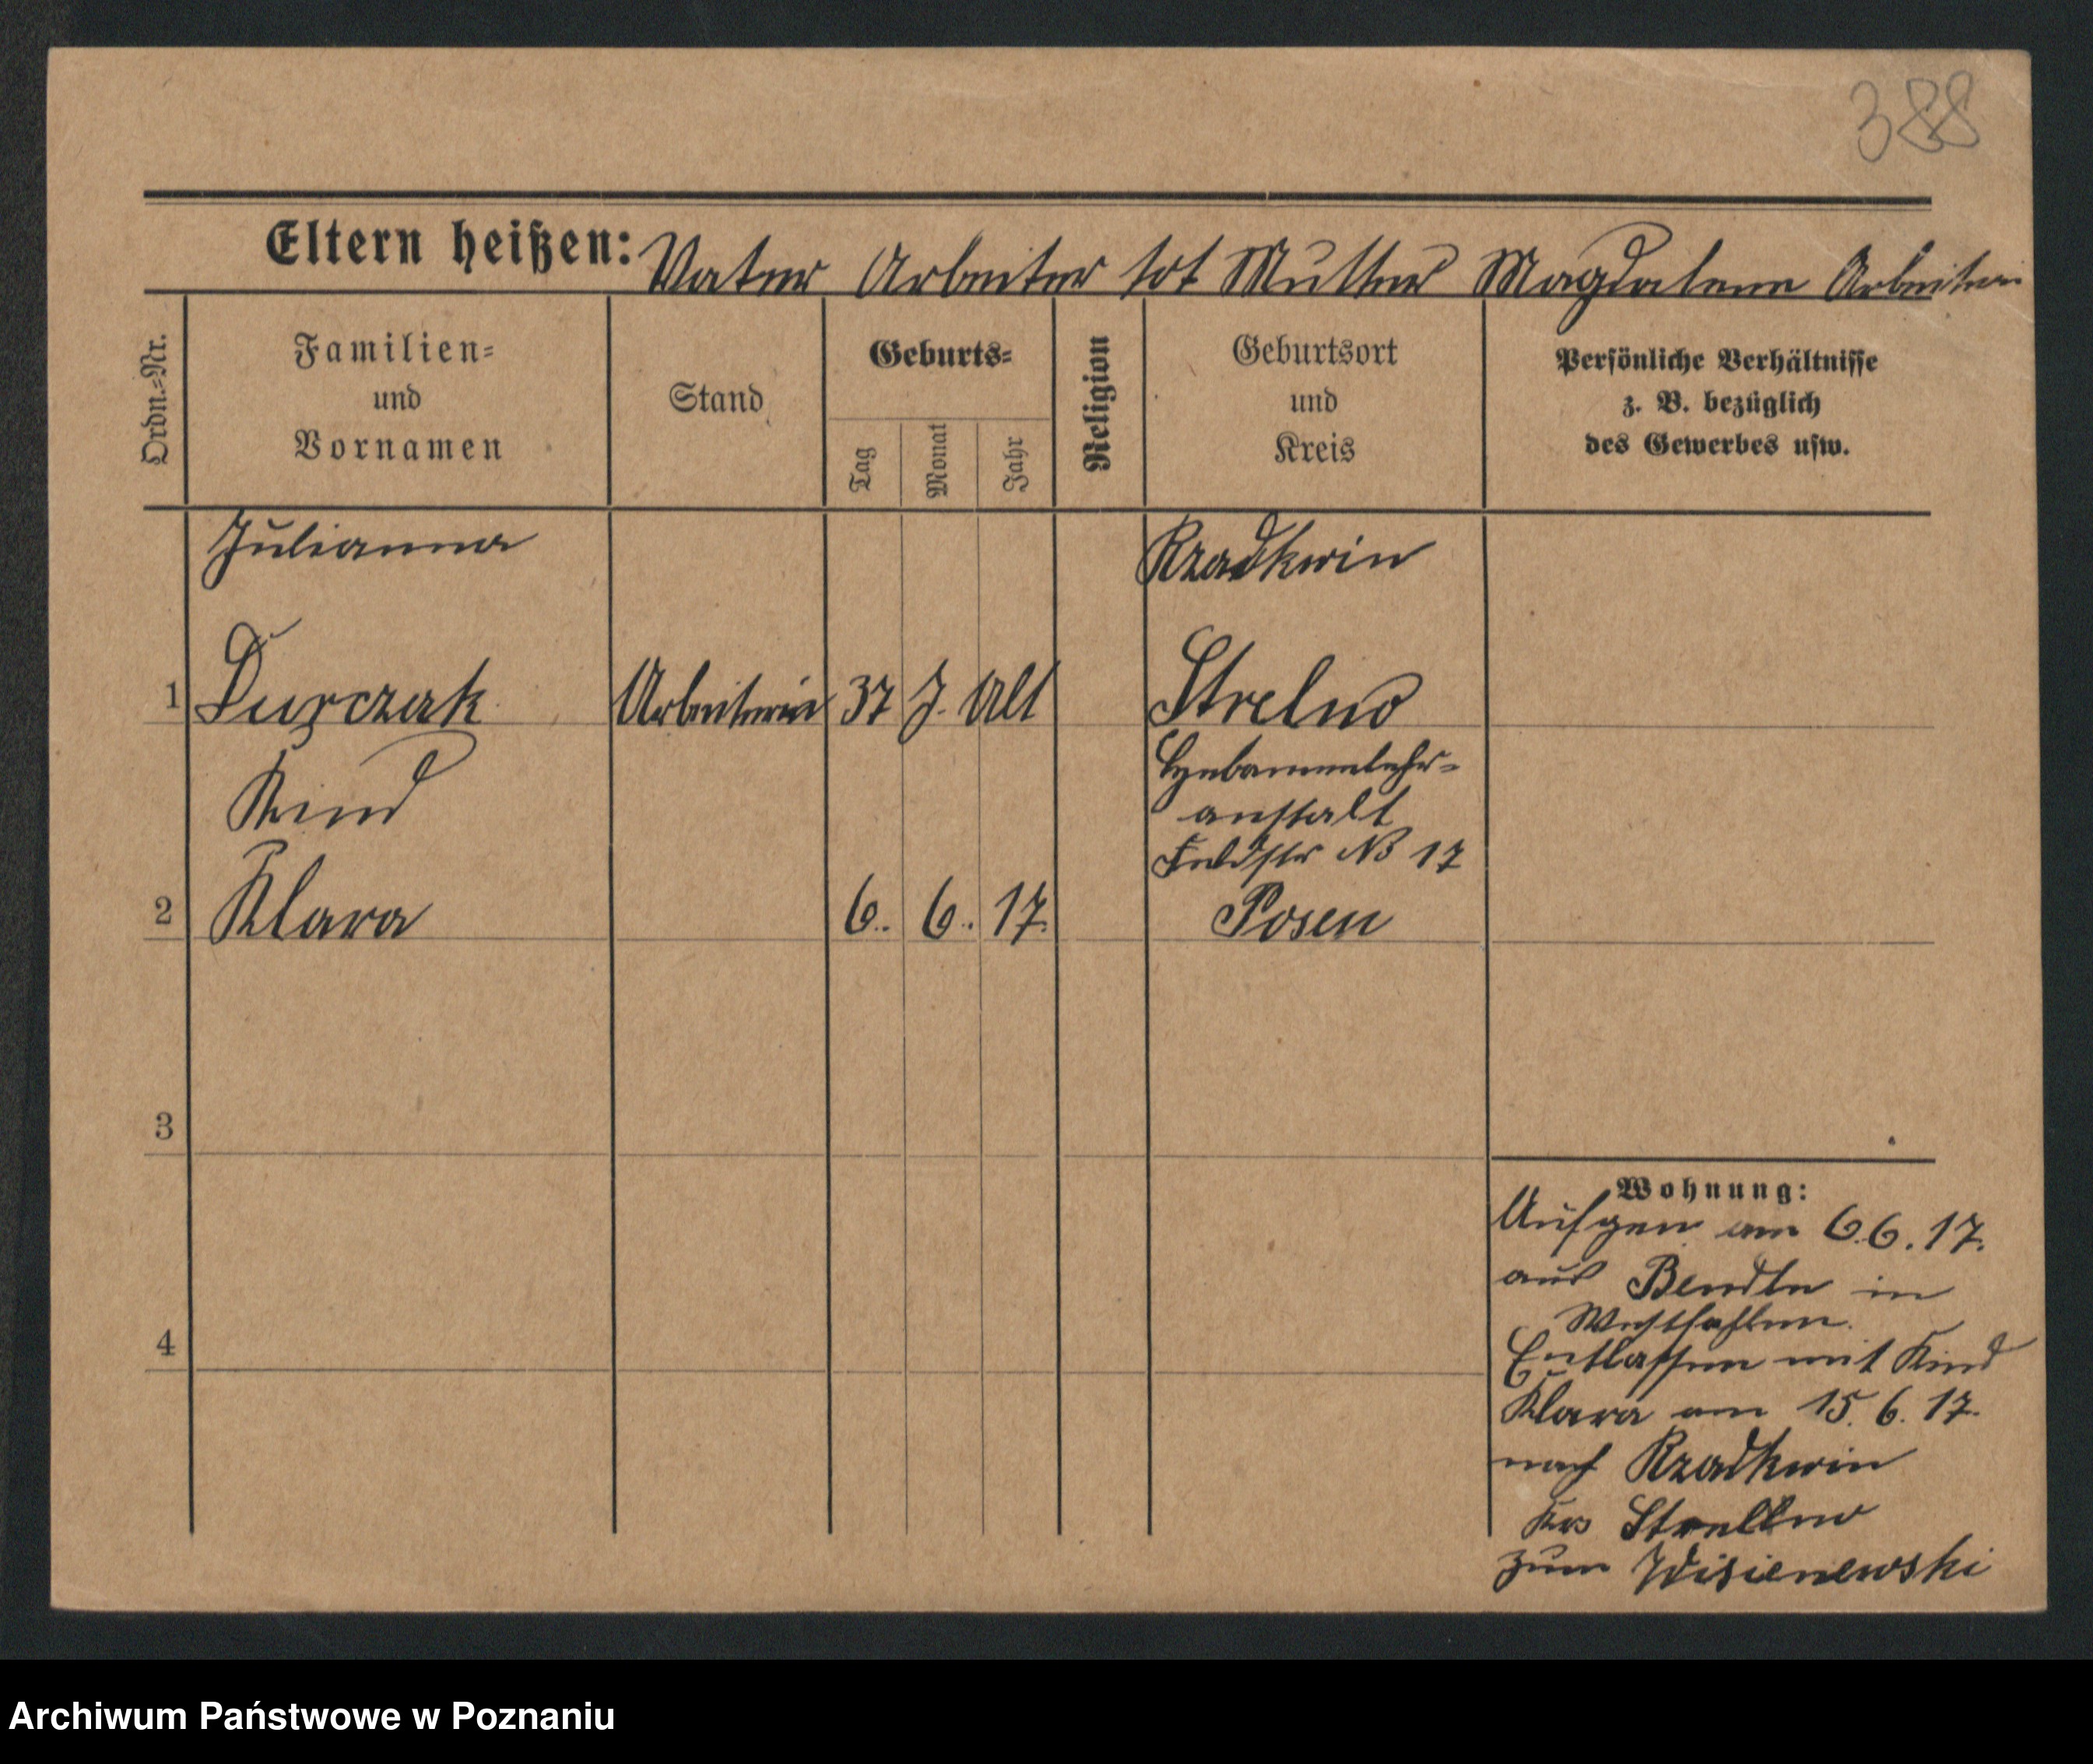 388
Eltern heißen: Vater Arbeiter tot Mutter Magdalene Arbeiterin
Ordn.=Nr.
Familien=
und
Vornamen
Stand
Geburts=
Tag
Monat
Jahr
Religion
Geburtsort
und
Kreis
Persönliche Verhältnisse
z. B. bezüglich
des Gewerbes usw.
Julianna Rzadkwin
1 Arbeiterin 37 J. Alt Strelno
Kind Hebammelehr-
anstalt
Feldstr No 17
2 Klara 6. 6. 17. Posen
3
Wohnung:
Aufgen am 6.6.17.
aus in
Westfahlen.
4
Entlassen mit Kind
Klara am 15.6.17.
nach Rzadkwin
Krs Strellno
zum Wisienewski
Archiwum Państwowe w Poznaniu